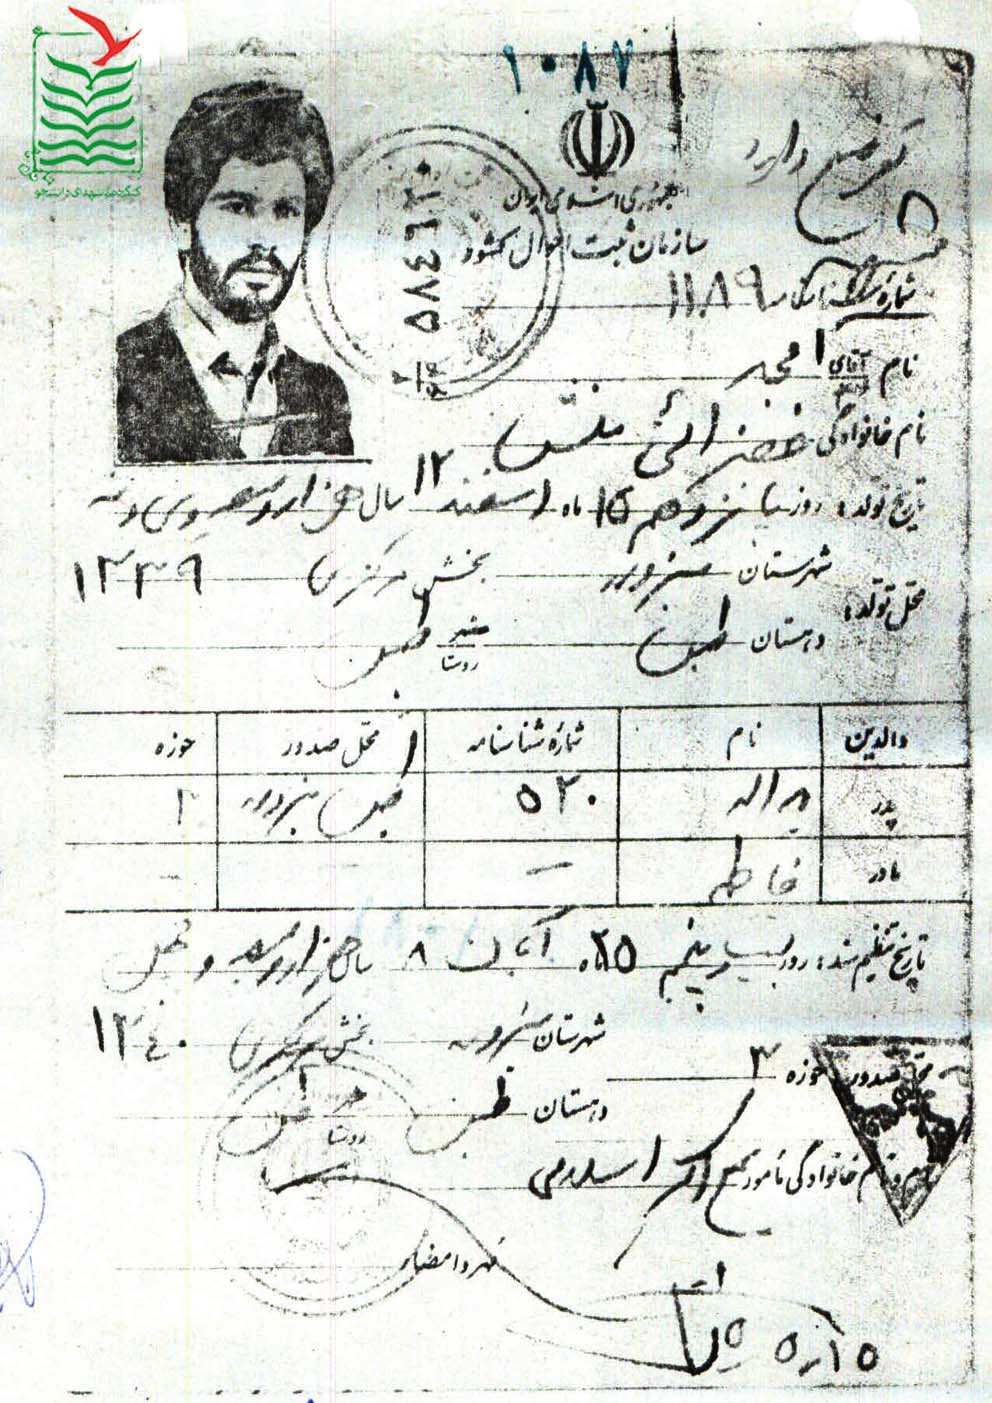 ۱۰۸۷
کنگره ملی شهدای دانشجو
تعویض دارد
جمهوری اسلامی ایران
سازمان ثبت احوال کشور
۵۸۴۶۳۰
شماره شناسنامه ۱۱۸۹
نام آقای امجد
نام خانوادگی خضرائی منش
تاریخ تولد: روز پانزدهم ۱۵ ماه اسفند ۱۲ سال هزار و سیصد و سی و نه
محل تولد: شهرستان سبزوار بخش مرکزی ۱۳۳۹
دهستان طبس شهر روستا طبس
والدین نام شماره شناسنامه محل صدور حوزه
پدر یداله ۵۲۰ طبس سبزوار ۳
مادر فاطمه – – –
تاریخ تنظیم سند: روز بیست و پنجم ۲۵ ماه آبان ۸ سال هزار و سیصد و چهل
شهرستان سبزوار بخش مرکزی ۱۳۴۰
محل صدور حوزه ۳
دهستان طبس روستا طبس
نام و نام خانوادگی مامور اکبر اسلامی
مهر و امضاء